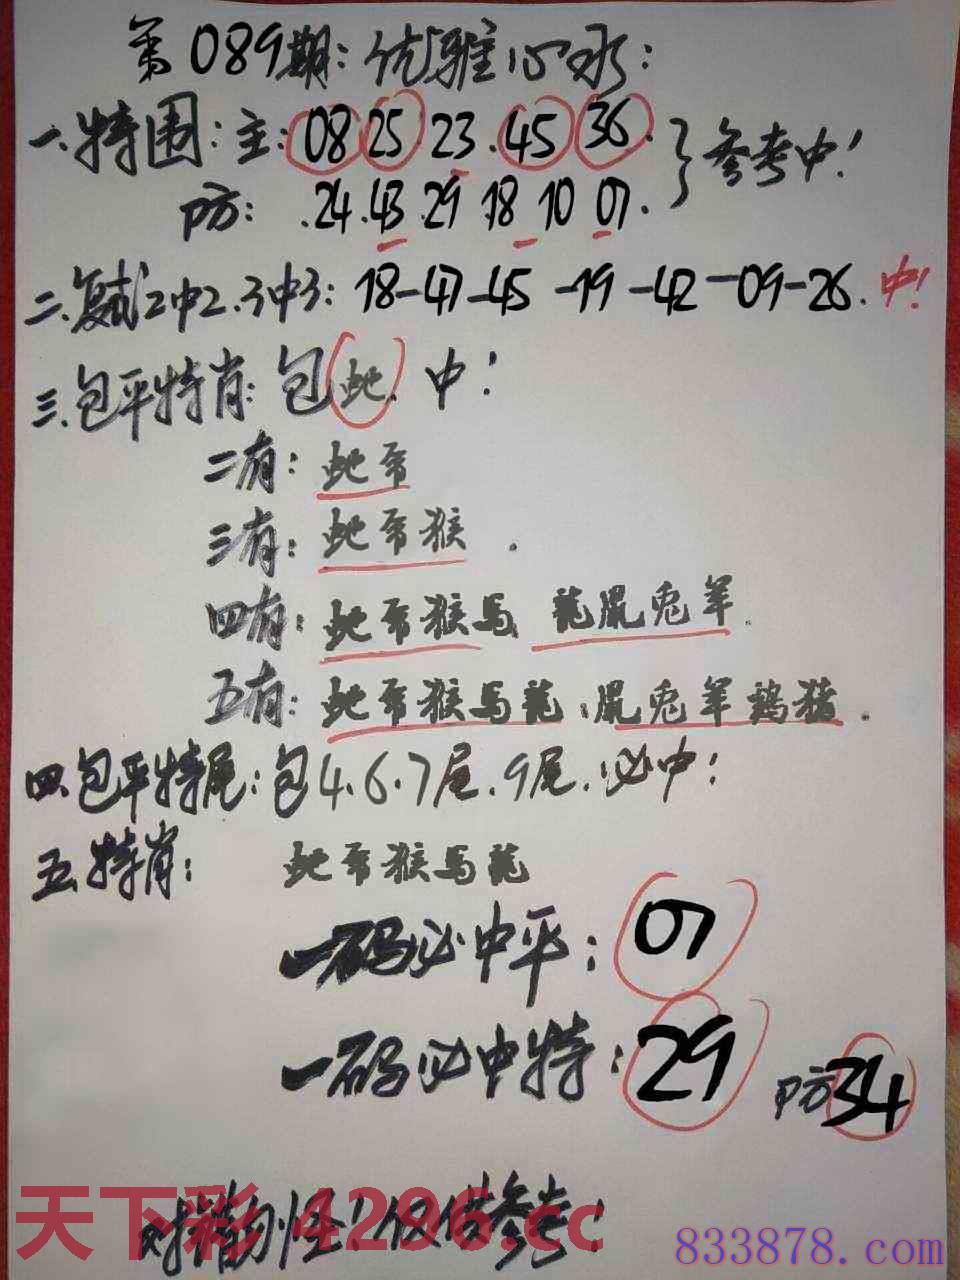 第089期:优雅心水:
一.特围:主:08 25 23.45 36.}参考中!
防:.24.43.29.18 10 07.
二.复式2中2.3中3:18-47-45-19-42-09-26.中!
三.包平特肖:包蛇.中!
二有:蛇
三有:蛇 猴.
四有:蛇 猴马 龙鼠兔羊.
五有:蛇 猴马龙.鼠兔羊鸡猪.
四.包平特尾:包4.6.7尾.9尾.必中:
五.特肖:蛇 猴马龙
一码必中平:07
一码必中特:29 防34
对错勿怪!仅供参考!
天下彩 4296.cc
833878.com